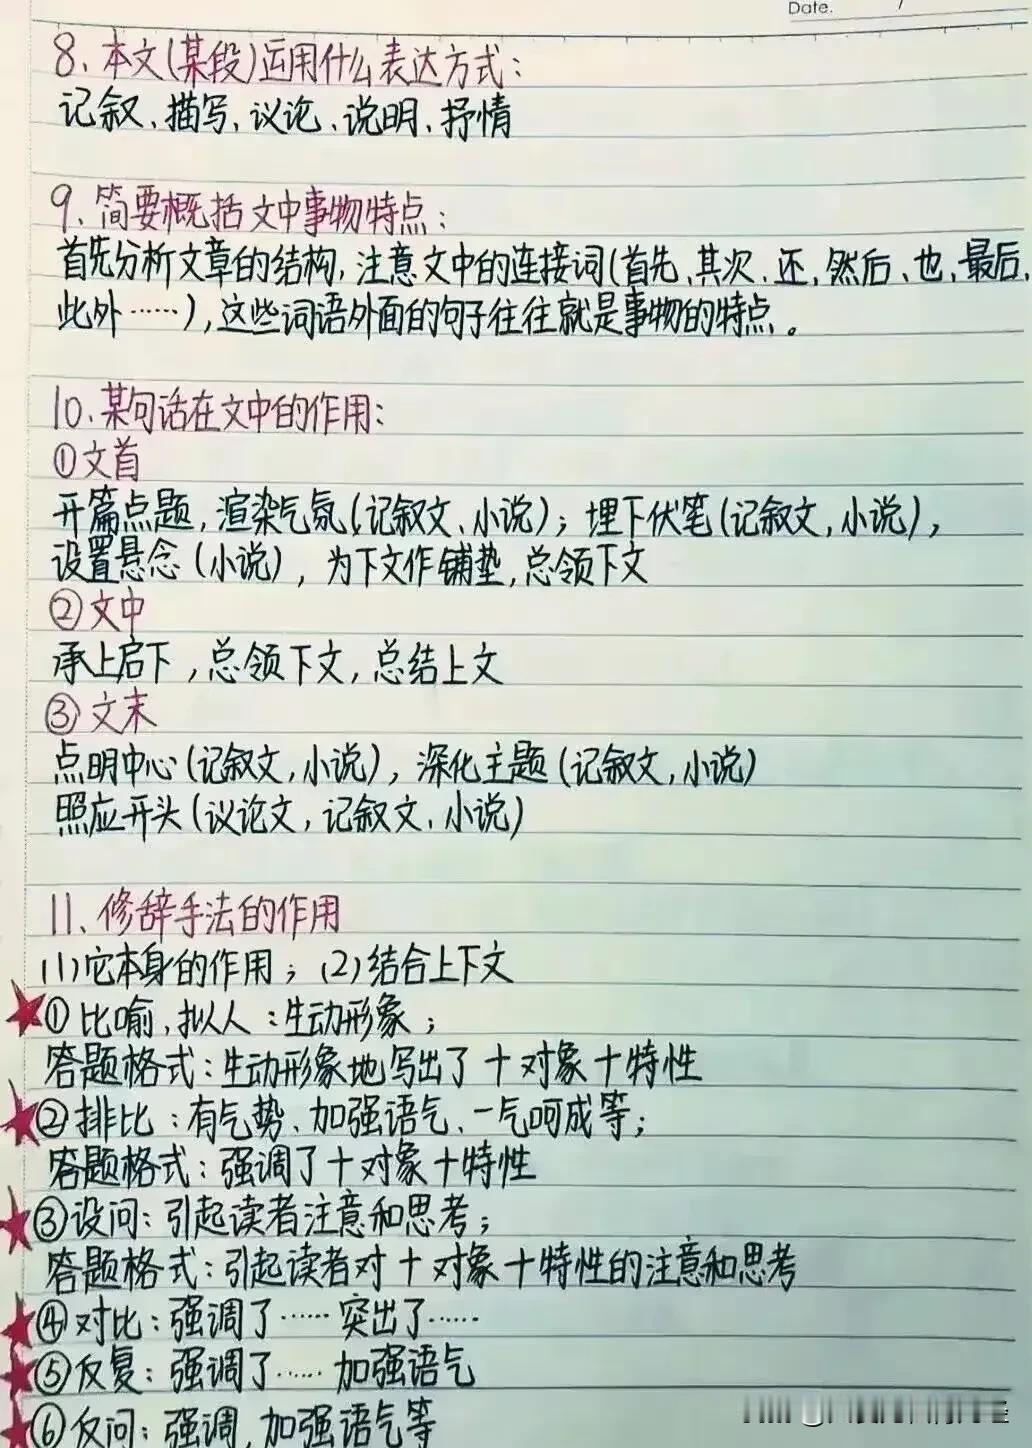 Date.
8、本文(某段)运用什么表达方式：
记叙、描写、议论、说明、抒情
9、简要概括文中事物特点：
首先分析文章的结构，注意文中的连接词(首先、其次、还，然后、也、最后，
此外……)，这些词语外面的句子往往就是事物的特点。
10、某句话在文中的作用：
①文首
开篇点题，渲染气氛(记叙文、小说)；埋下伏笔(记叙文，小说)，
设置悬念(小说)，为下文作铺垫，总领下文
②文中
承上启下，总领下文，总结上文
③文末
点明中心(记叙文，小说)，深化主题(记叙文，小说)
照应开头(议论文，记叙文、小说)
11、修辞手法的作用
(1)它本身的作用；(2)结合上下文
①比喻，拟人：生动形象；
答题格式：生动形象地写出了+对象+特性
②排比：有气势、加强语气、一气呵成等；
答题格式：强调了+对象+特性
③设问：引起读者注意和思考；
答题格式：引起读者对+对象+特性的注意和思考
④对比：强调了……突出了……
⑤反复：强调了……加强语气
⑥反问：强调，加强语气等